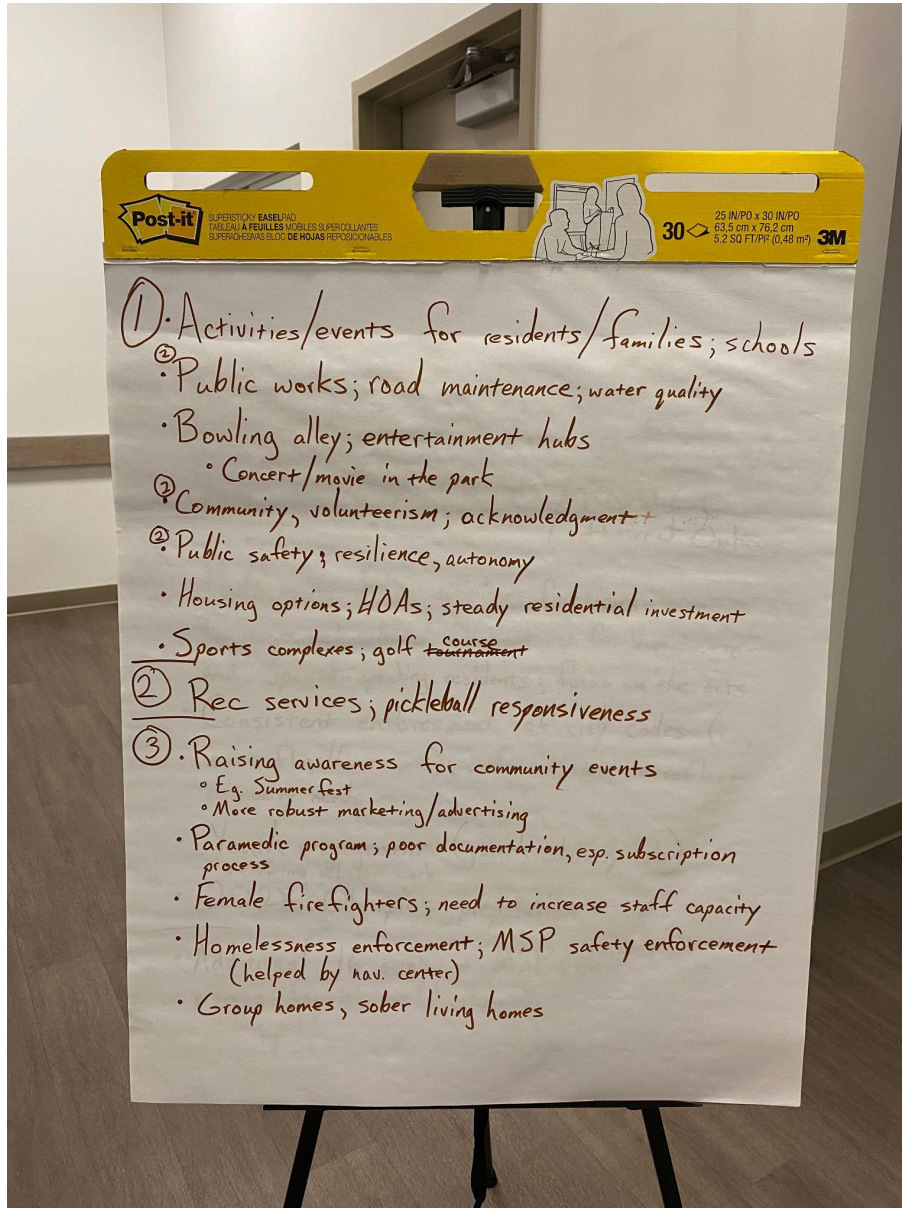 Post-it
SUPERSTICKY EASELPAD
TABLEAU À FEUILLES MOBILES SUPERCOLLANTES
SUPERADHESIVAS BLOC DE HOJAS REPOSICIONABLES
30
25 IN/PO x 30 IN/PO
63,5 cm x 76,2 cm
5.2 SQ FT/PI² (0,48 m²)
3M
① · Activities/events for residents/families; schools
② · Public works; road maintenance; water quality
· Bowling alley; entertainment hubs
◦ Concert/movie in the park
② · Community, volunteerism; acknowledgment
② · Public safety; resilience, autonomy
· Housing options; HOAs; steady residential investment
· Sports complexes; golf tournament course
② Rec services; pickleball responsiveness
③ · Raising awareness for community events
◦ E.g. Summerfest
◦ More robust marketing/advertising
· Paramedic program; poor documentation, esp. subscription
process
· Female firefighters; need to increase staff capacity
· Homelessness enforcement; MSP safety enforcement
(helped by nav. center)
· Group homes, sober living homes